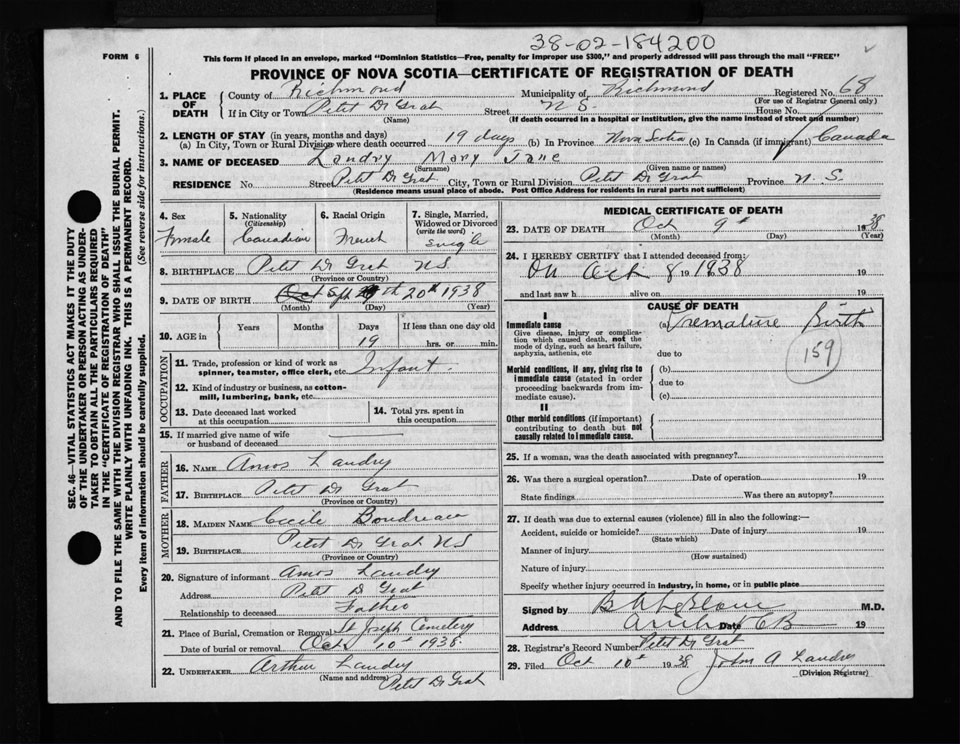 38-02-184200
FORM 6
This form if posted in an envelope, marked "Dominion Statistics—Free, penalty for improper use $300," and properly addressed will pass through the mail "FREE"
PROVINCE OF NOVA SCOTIA—CERTIFICATE OF REGISTRATION OF DEATH
1. PLACE OF DEATH
County of Richmond Municipality of Richmond Registered No. 68
(For use of Registrar General only)
If in City or Town Petit De Grat Street N S. House No.
(Name) (If death occurred in a hospital or institution, give the name instead of street and number)
2. LENGTH OF STAY (in years, months and days)
(a) In City, Town or Rural Division where death occurred 19 days (b) In Province Nova Scotia (c) In Canada (if immigrant) Canada
3. NAME OF DECEASED Landry Mary Jane
(Surname) (Given name or names)
RESIDENCE No. Street Petit De Grat City, Town or Rural Division Petit De Grat Province N. S.
(Residence means usual place of abode. Post Office Address for residents in rural parts not sufficient)
4. Sex
Female
5. Nationality
(Citizenship)
Canadian
6. Racial Origin
French
7. Single, Married, Widowed or Divorced
(write the word)
single
8. BIRTHPLACE Petit De Grat N.S.
(Province or Country)
9. DATE OF BIRTH Oct Sept 20th 1938
(Month) (Day) (Year)
10. AGE in
Years
Months
Days
19
If less than one day old
hrs. or min.
OCCUPATION
11. Trade, profession or kind of work as spinner, teamster, office clerk, etc. Infant.
12. Kind of industry or business, as cotton-mill, lumbering, bank, etc.
13. Date deceased last worked at this occupation
14. Total yrs. spent in this occupation
15. If married give name of wife or husband of deceased
FATHER
16. NAME Amos Landry
17. BIRTHPLACE Petit De Grat
(Province or Country)
MOTHER
18. MAIDEN NAME Cecile Boudreau
19. BIRTHPLACE Petit De Grat N S
(Province or Country)
20. Signature of informant Amos Landry
Address Petit De Grat
Relationship to deceased Father
21. Place of Burial, Cremation or Removal St Joseph Cemetery
Date of burial or removal Oct 10th 1938
22. UNDERTAKER Arthur Landry
(Name and address) Petit De Grat
MEDICAL CERTIFICATE OF DEATH
23. DATE OF DEATH Oct 9th 1938
(Month) (Day) (Year)
24. I HEREBY CERTIFY that I attended deceased from:
On Oct 8 19 1938 19
and last saw h alive on 19
CAUSE OF DEATH
I
Immediate cause
Give disease, injury or complication which caused death, not the mode of dying, such as heart failure, asphyxia, asthenia, etc
(a) Premature Birth
159
due to
Morbid conditions, if any, giving rise to immediate cause (stated in order proceeding backwards from immediate cause).
(b)
due to
(c)
II
Other morbid conditions (if important) contributing to death but not causally related to immediate cause.
25. If a woman, was the death associated with pregnancy?
26. Was there a surgical operation? Date of operation 19
State findings Was there an autopsy?
27. If death was due to external causes (violence) fill in also the following:—
Accident, suicide or homicide? Date of injury 19
(State which)
Manner of injury
(How sustained)
Nature of injury
Specify whether injury occurred in industry, in home, or in public place
Signed by M.D.
Address Arichat CB Date 19
28. Registrar's Record Number Petit De Grat
29. Filed Oct 10th 1938 John A Landry
(Division Registrar)
SEC. 46—VITAL STATISTICS ACT MAKES IT THE DUTY
OF THE UNDERTAKER OR PERSON ACTING AS UNDER-
TAKER TO OBTAIN ALL THE PARTICULARS REQUIRED
IN THE "CERTIFICATE OF REGISTRATION OF DEATH"
AND TO FILE THE SAME WITH THE DIVISION REGISTRAR WHO SHALL ISSUE THE BURIAL PERMIT.
WRITE PLAINLY WITH UNFADING INK. THIS IS A PERMANENT RECORD.
Every item of information should be carefully supplied. (See reverse side for instructions.)